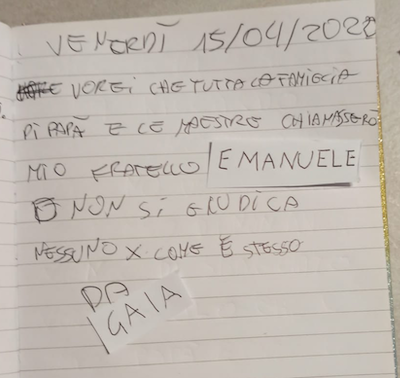 VENERDÌ 15/04/2022
VOREI CHE TUTTA LA FAMIGLIA
DI PAPÀ E LE MAESTRE CHIAMASSERO
MIO FRATELLO EMANUELE
NON SI GIUDICA
NESSUNO X COME È STESSO
DA
GAIA